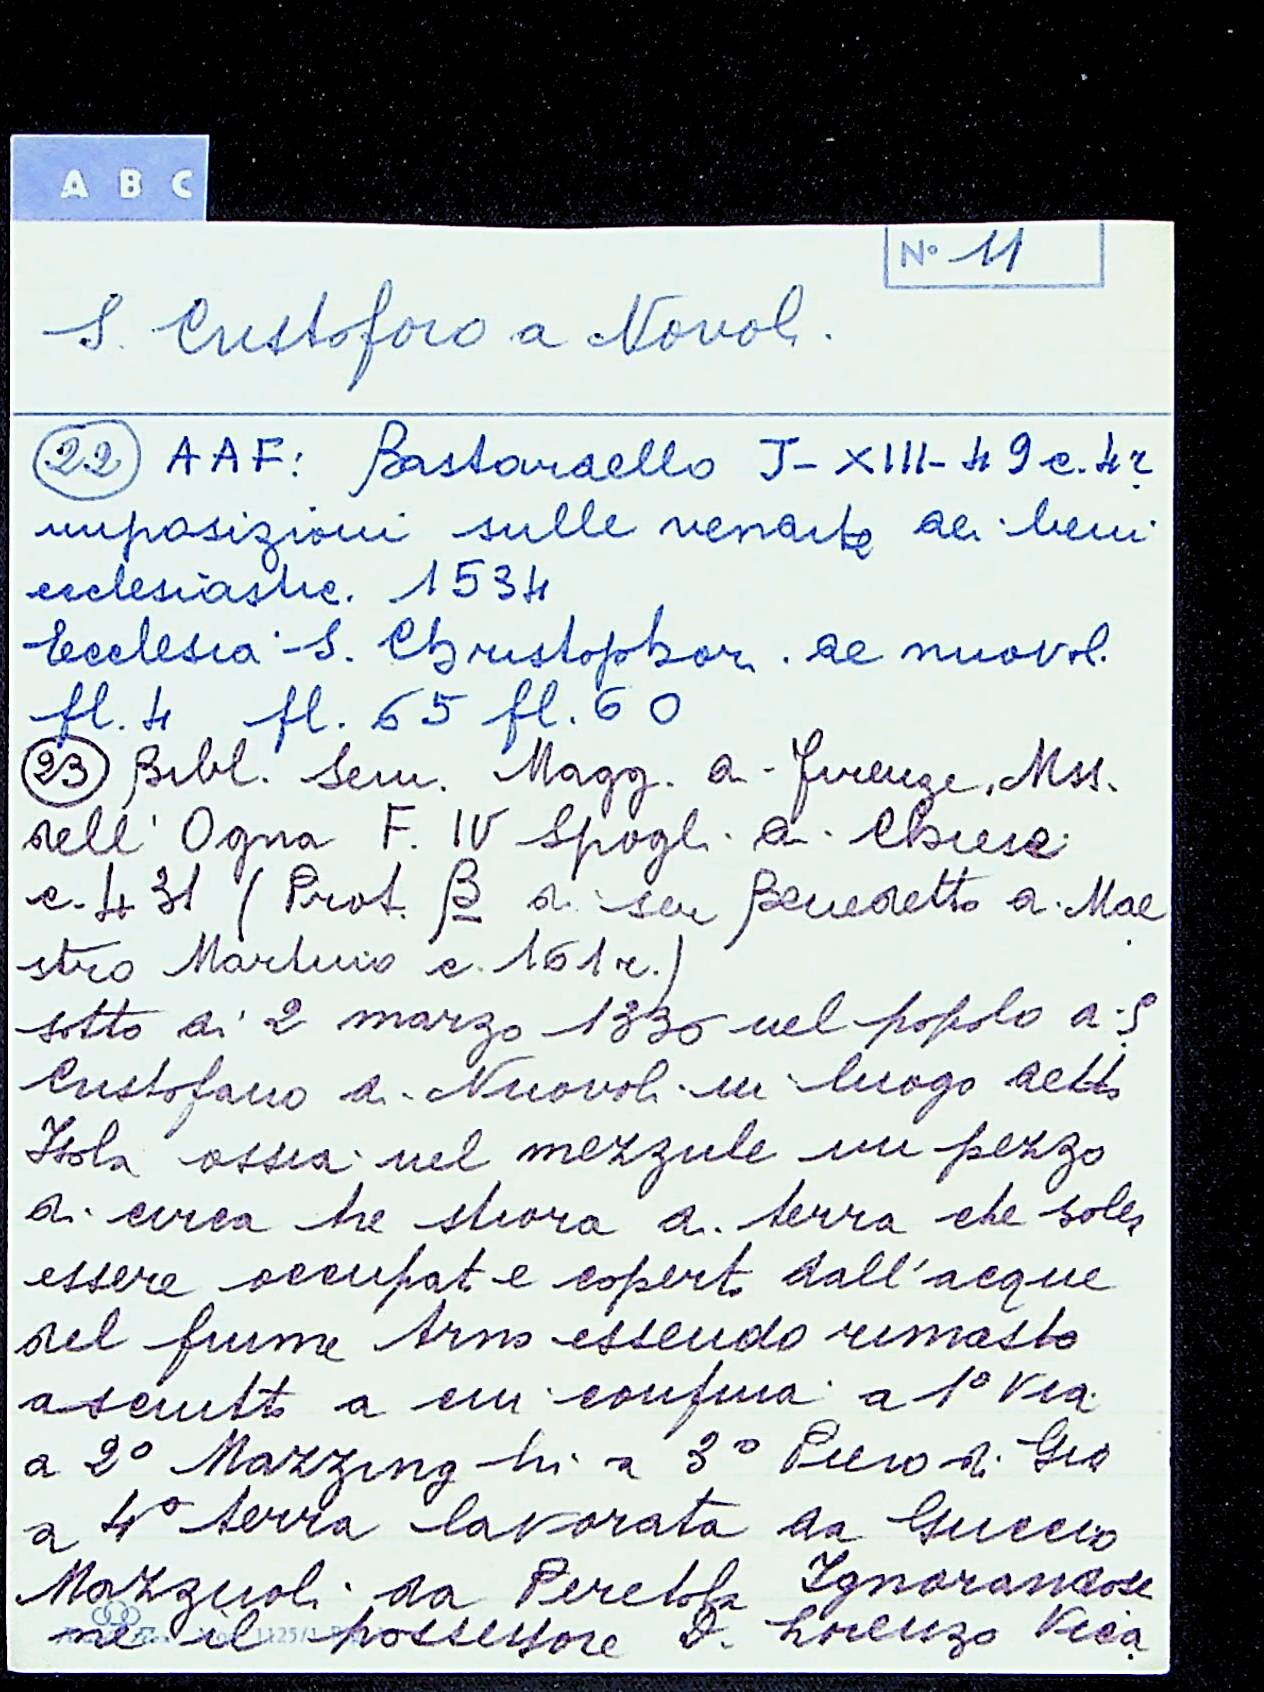 A B C
N° 11
S. Cristoforo a Novoli.
22 AAF: Bastardello I-XIII-49 c. 4r
imposizioni sulle vendite dei beni
ecclesiastic. 1534
Ecclesia S. Christophori de nuovoli
fl. 4 fl. 65 fl. 60
23 Bibl. Sem. Magg. di Firenze, Mss.
dell'Ogna F. IV Spogli di Chiese
c. 431 (Prot. B di ser Benedetto di Mae
stro Martino c. 161r.)
sotto di 2 marzo 1336 nel popolo di S
Cristofano di Nuovoli in luogo detto
Isola ossia nel mezzule un pezzo
di circa tre stiora di terra che soleva
essere occupato e coperto dall'acque
del fiume Arno essendo rimasto
asciutto a cui confina a 1° Via
a 2° Mazzinghi a 3° Piero di Gio
a 4° terra lavorata da Guccio
Mazzuoli da Peretola Ignorandose
ne il possessore D. Lorenzo Vica